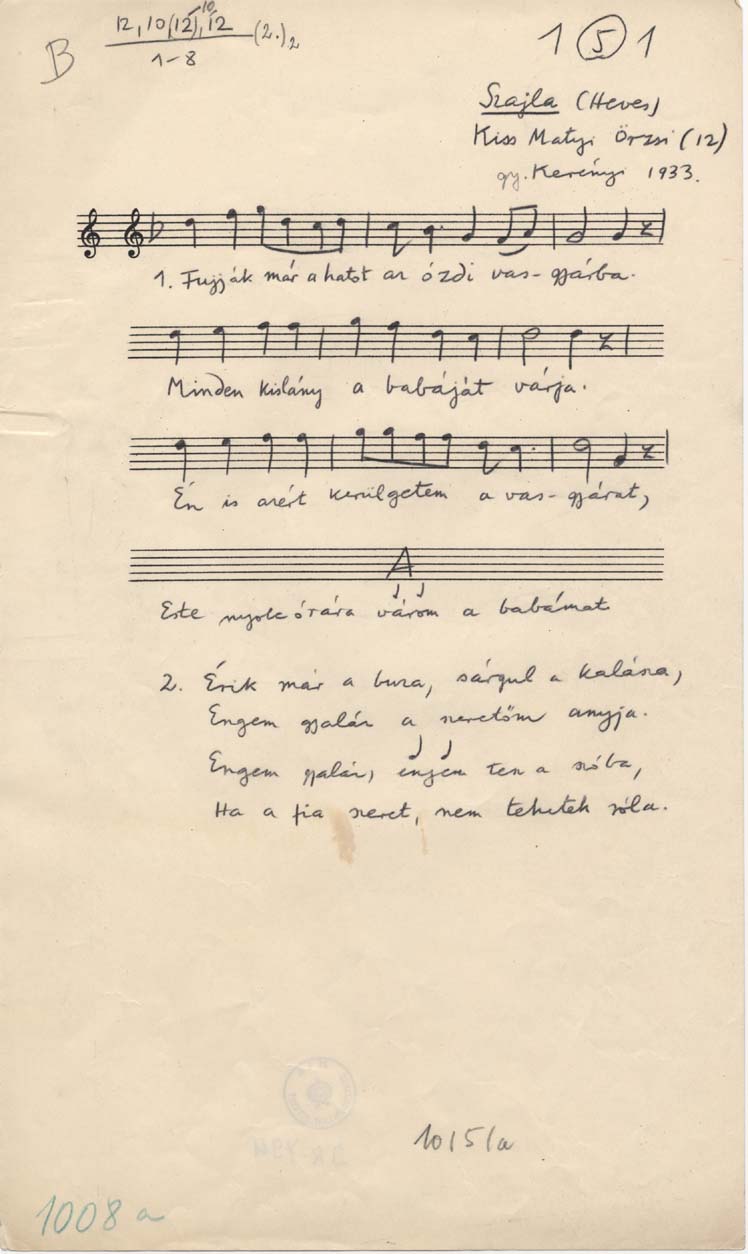 B
12, 10, (12), 12 (2.)₂
10
1-8
1 5 1
Szajla (Heves)
Kiss Matyi Örzsi (12)
gy. Kerényi 1933.
1. Fujják már a hatot az ózdi vas-gyárba.
Minden kislány a babáját várja.
Én is azért kerülgetem a vas-gyárat,
A
Este nyolc órára várom a babámat
2. Érik már a buza, sárgul a kalásza,
Engem gyaláz a szeretőm anyja.
Engem gyaláz, engem tesz a szóba,
Ha a fia szeret, nem tehetek róla.
10/5/a
1008 a